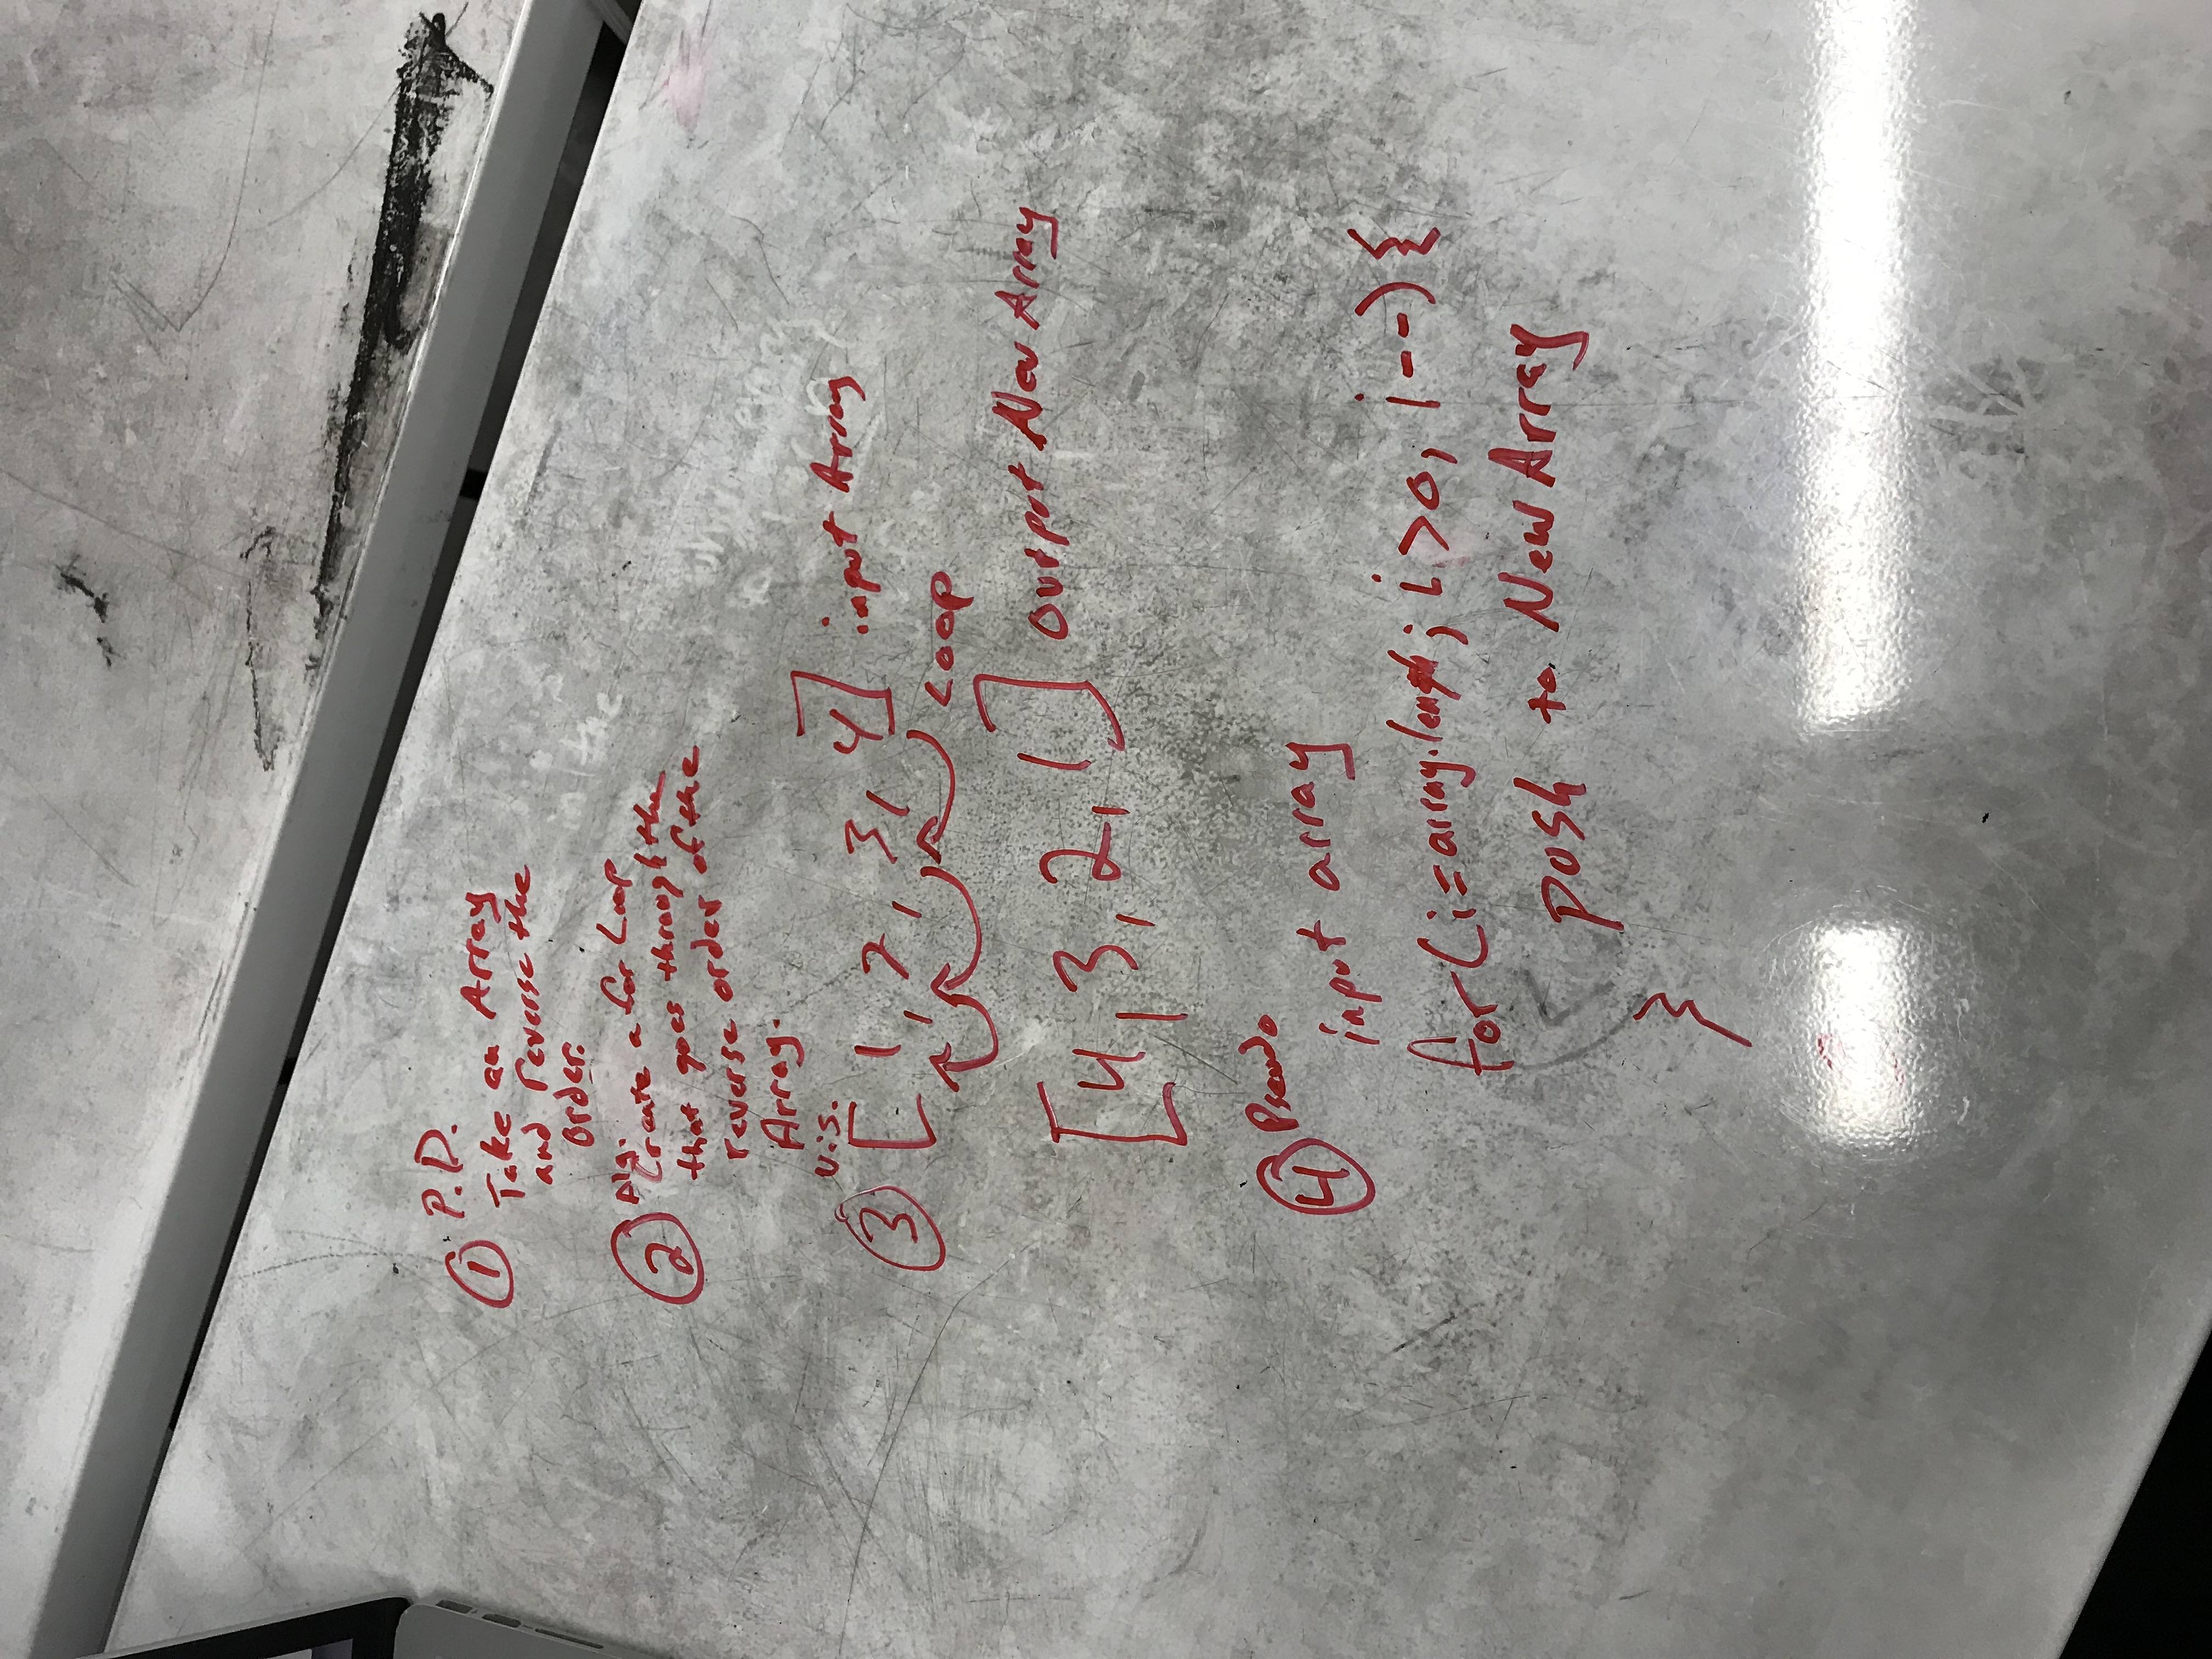 ① P.D.
Take an Array
and reverse the
order.
② Alg.
Create a for Loop
that goes through the
reverse order of the
Array.
③ Vis.
[1, 2, 3, 4] input Array
Loop
[4, 3, 2, 1] Output New Array
④ Pseudo
input array
for(i=array.length; i>0; i--){
push to New Array
}